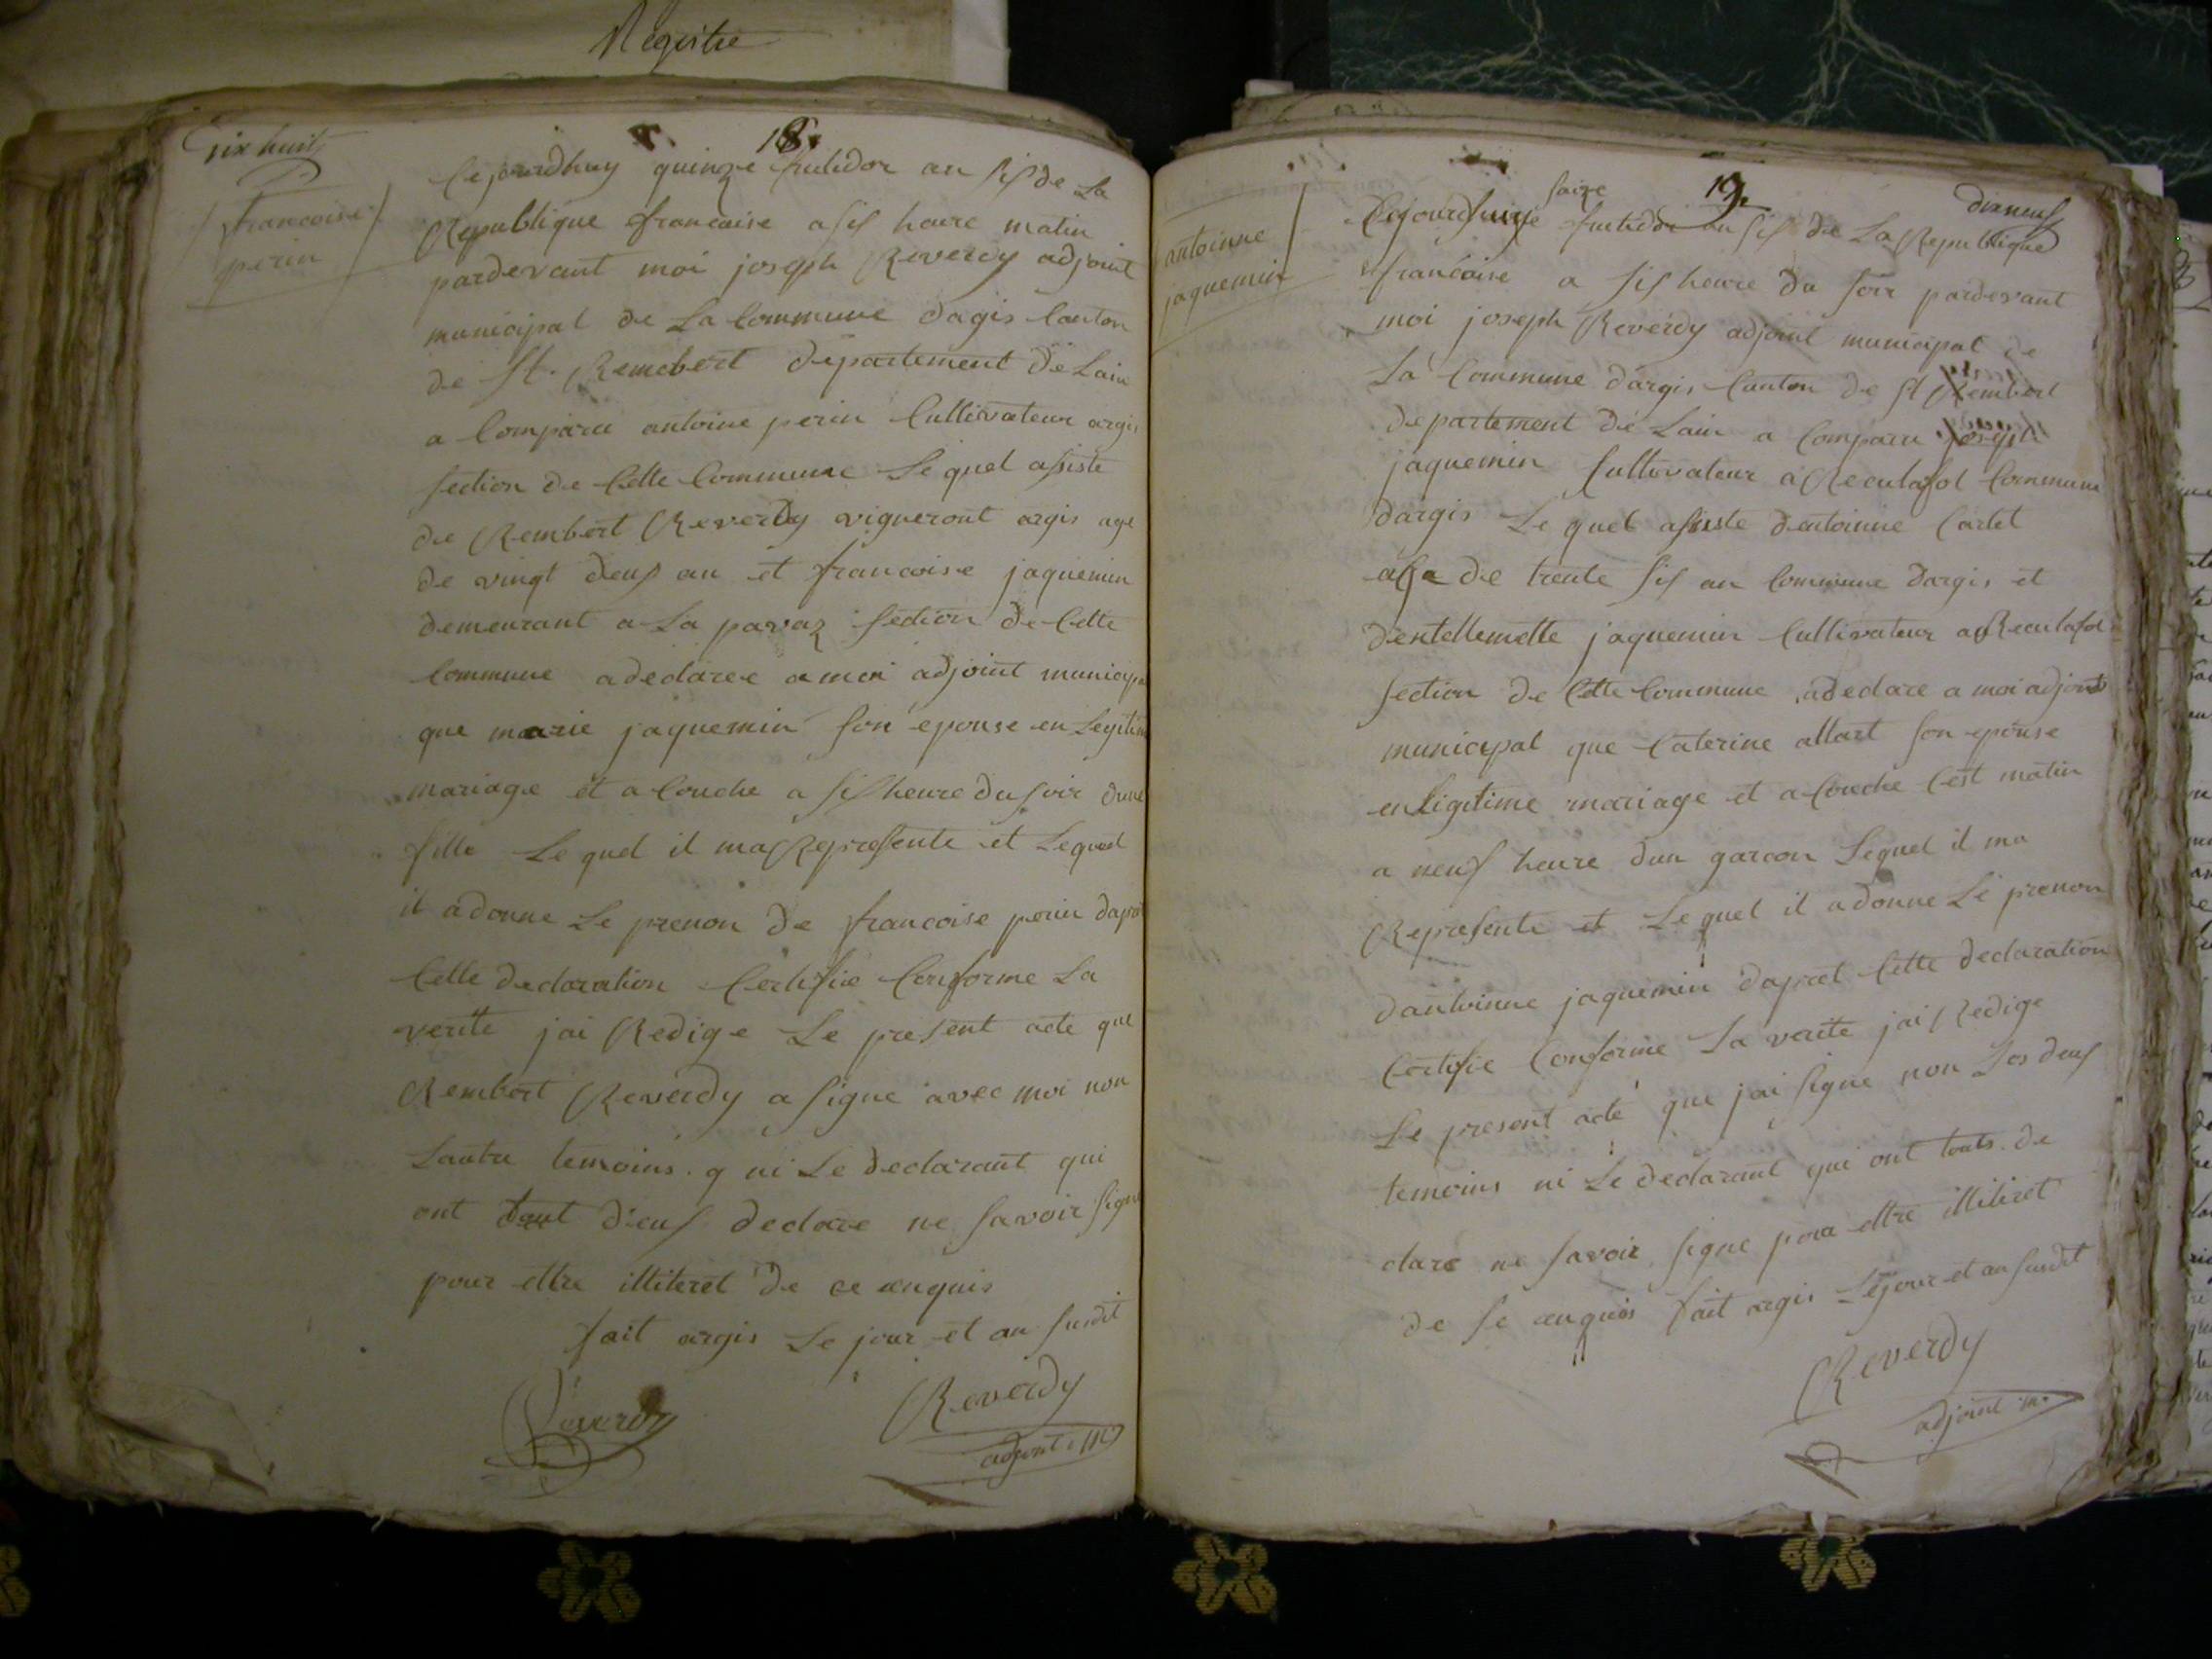 Registre
Dix huit
18.
francoise
perin
Cejourdhuy quinze frutidor an sis de La
Republique francaise a sis heure matin
pardevant moi joseph Reverdy adjoint
municipal de La Commune dagis Canton
de St. Remebert departement de Lain
a Comparu antoine perin Cultivateur argis
section de Cette Commune Le quel asiste
de Rembert Reverdy vigneront argis age
de vingt deus an et francoise jaquemin
demeurant a La pavaz section de Cette
Commune a declaree a moi adjoint municipa
que marie jaquemin son epouse en Legitim
mariage et a Couche a sis heure du soir dune
fille Le quel il ma Represente et Lequel
il a donne Le prenon de francoise perin dapre
Cette declaration Certifie Conforme La
verite jai Redige Le present acte que
Rembert Reverdy a signe avec moi non
Lautre temoins q ni Le declarant qui
ont tout deus declare ne savoir signe
pour ettre illiteret de ce anquis
fait argis Le jour et an susdit
Reverdy
Reverdy
adjoint m
19.
dix neuf
antoinne
jaquemin
saize
Cejourdhuy frutidor an sis de La Republique
francaise a sis heure du soir pardevant
moi joseph Reverdy adjoint municipal de
La Commune dargis Canton de St Rembert
departement de Lain a Comparu joseph
jaquemin Cultivateur a Reculafol Commune
dargis Le quel asiste dentoinne Cartet
age de trente sis an Commune dargis et
dentellemette jaquemin Cultivateur a Reculafol
section de Cette Commune a declare a moi adjont
municipal que Caterine allart son epouse
en Ligitime mariage et a Couche Cest matin
a neuf heure dun garcon Lequel il ma
Represente et Le quel il a donne Le prenon
dantoinne jaquemin dapret Cette declaration
Certifie Conforme La verite jai Redige
Le present acte que jai signe non Les deus
temoins ni Le declarant qui ont touts de
clare ne savoir signe pour ettre illiteret
de se anquis fait argis Le jour et an susdit
Reverdy
adjoint m.